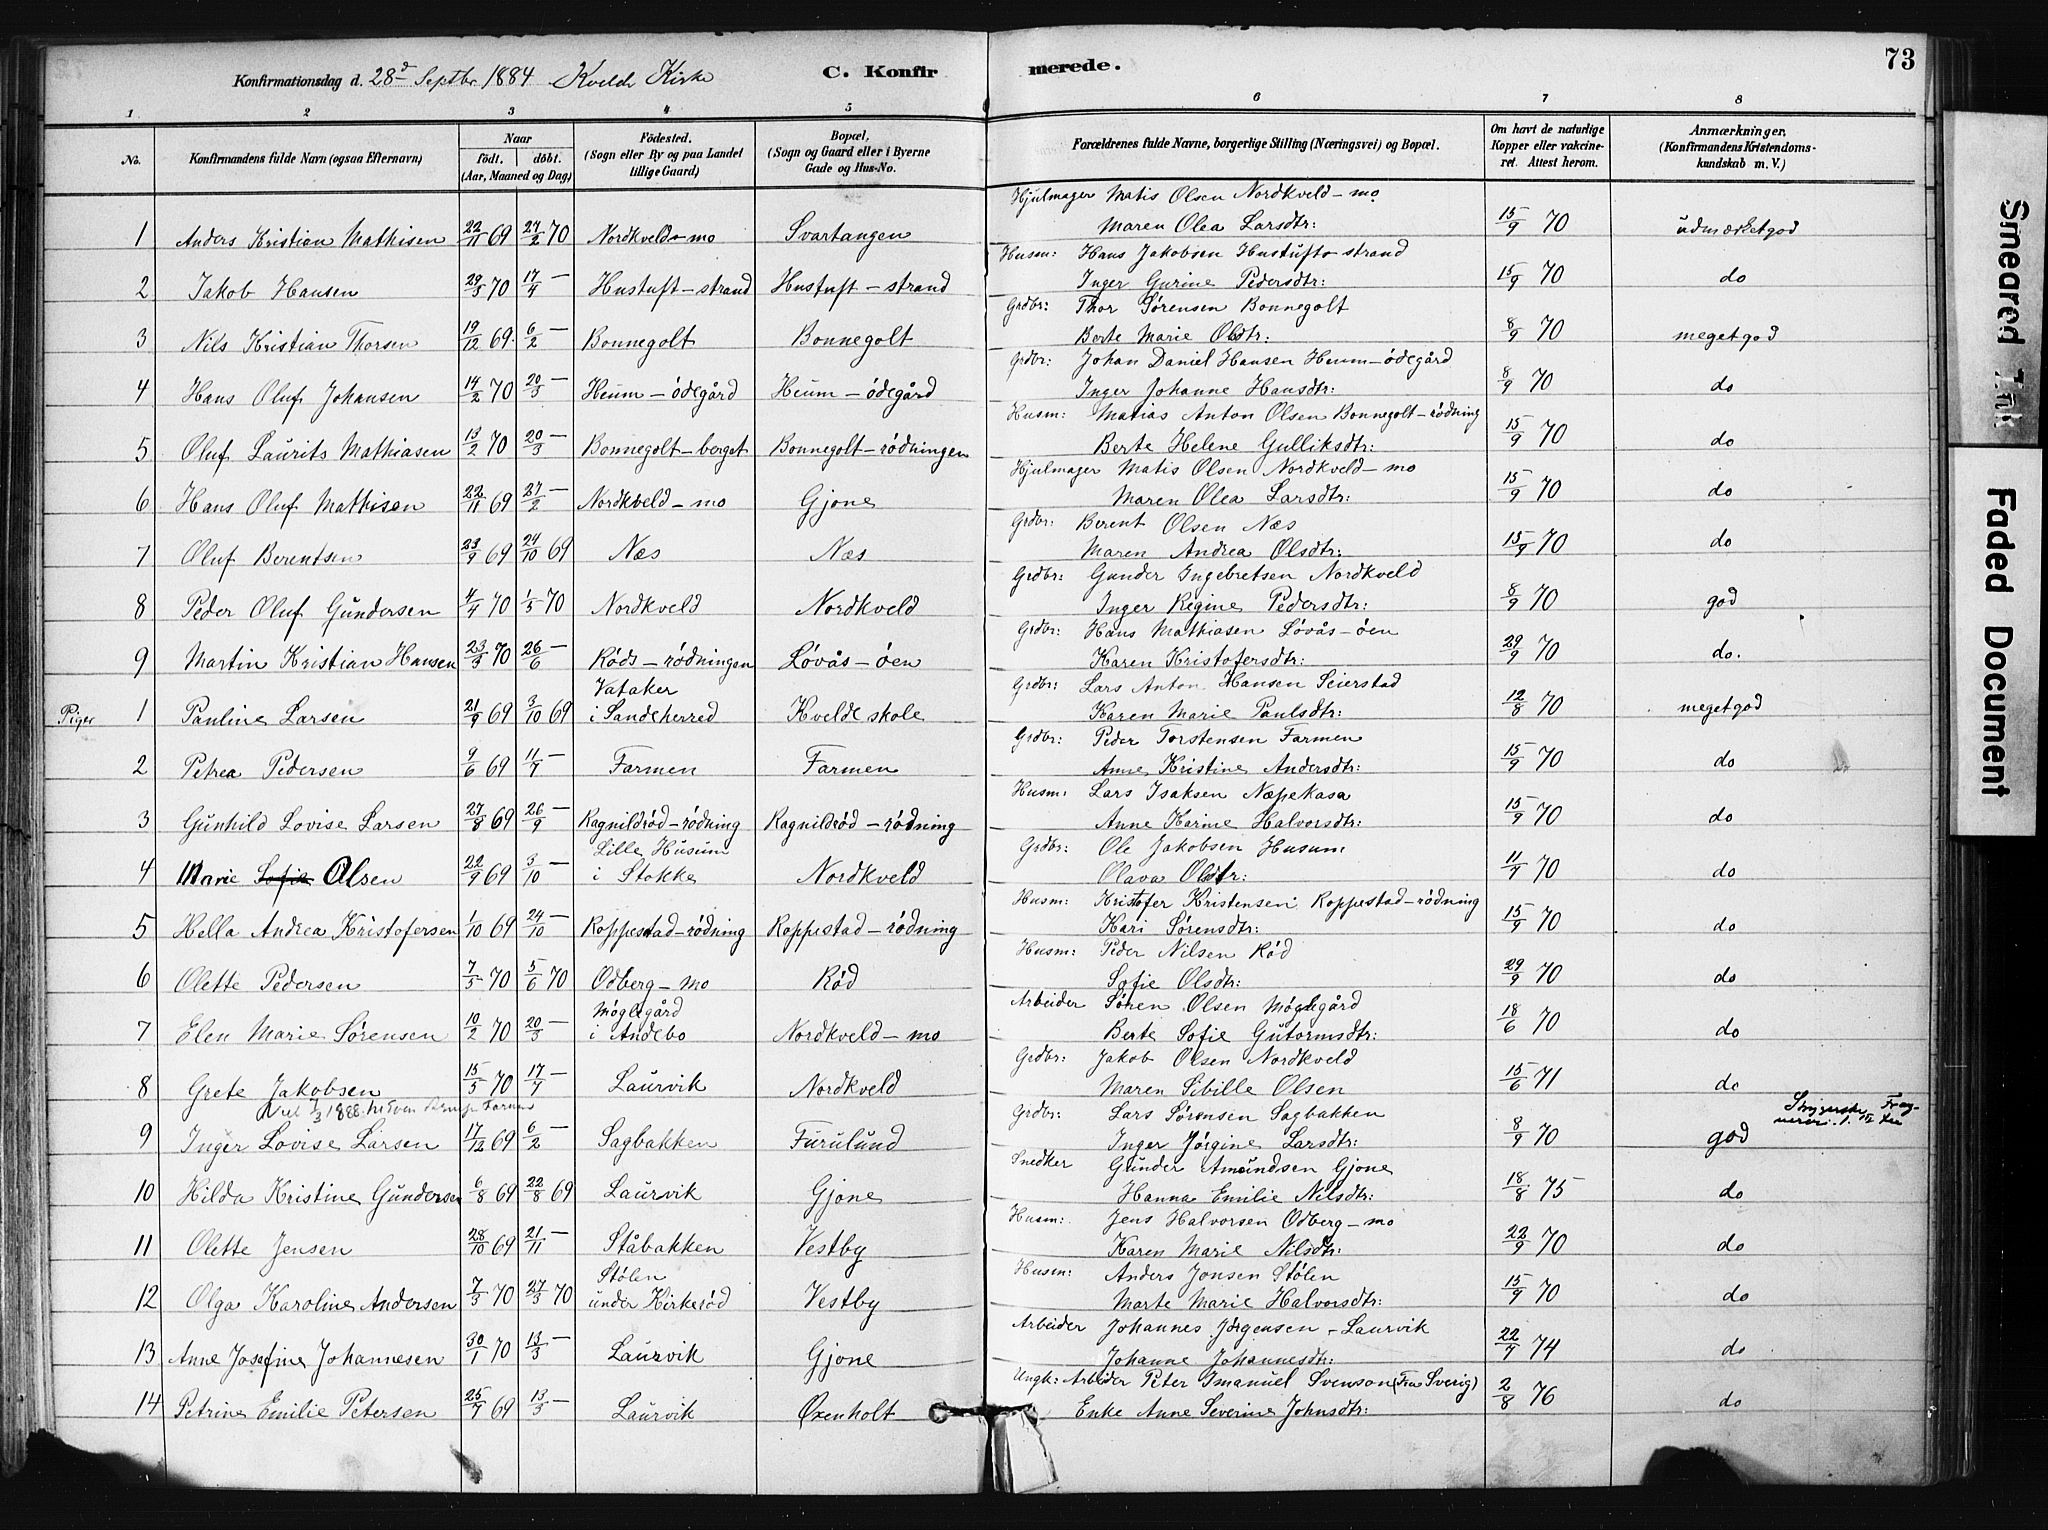 73
Konfirmationsdag d. 28d Septbr 1884 Kvelde Kirke
C. Konfirmerede.
1 2 3 4 5 6 7 8
No.
Konfirmandens fulde Navn (ogsaa Efternavn)
Naar
födt. döbt.
(Aar, Maaned og Dag)
Födested.
(Sogn eller By og paa Landet
tillige Gaard)
Bopæl.
(Sogn og Gaard eller i Byerne
Gade og Hus-No.
Forældrenes fulde Navne, borgerlige Stilling (Næringsvei) og Bopæl.
Om havt de naturlige
Kopper eller vakcine-
ret. Attest herom.
Anmærkninger.
(Konfirmandens Kristendoms-
kundskab m. V.)
Hjulmager Matis Olsen Nordkveld-mo
1 Anders Kristian Mathisen 22/11 69 27/2 70 Nordkveld-mo Svartangen Maren Olea Larsdtr: 15/9 70 udmærketgod
Husm: Hans Jakobsen Hustuft-strand
2 Jakob Hansen 29/3 70 17/4 — Hustuft-strand Hustuft-strand Inger Gurine Pedersdtr: 15/9 70 do
Grdbr: Thor Sørensen Bonnegolt
3 Nils Kristian Thorsen 19/12 69 6/2 — Bonnegolt Bonnegolt Berte Marie Olsdtr: 8/9 70 megetgod
Grdbr: Johan Daniel Hansen Heum-ödegård
4 Hans Oluf Johansen 14/2 70 20/3 — Heum-ödegård Heum-ödegård Inger Johanne Hansdtr: 8/9 70 do
Husm: Matias Anton Olsen Bonnegolt-rödning
5 Oluf Laurits Mathiasen 13/2 70 20/3 — Bonnegolt-berget Bonnegolt-rödningen Berte Helene Gulliksdtr: 15/9 70 do
Hjulmager Matis Olsen Nordkveld-mo
6 Hans Oluf Mathisen 22/11 69 27/2 — Nordkveld-mo Gjone Maren Olea Larsdtr: 15/9 70 do
Grdbr: Berent Olsen Næs
7 Oluf Berentsen 23/9 69 24/10 69 Næs Næs Maren Andrea Olsdtr: 15/9 70 do
Grdbr: Gunder Ingebretsen Nordkveld
8 Peder Oluf Gundersen 4/4 70 1/5 70 Nordkveld Nordkveld Inger Regine Pedersdtr: 8/9 70 god
Grdbr: Hans Mathiasen Lövås-öen
9 Martin Kristian Hansen 23/3 70 26/6 — Röds-rödningen Lövås-öen Karen Kristofersdtr: 29/9 70 do.
Vataker Grdbr: Lars Anton Hansen Seierstad
Piger 1 Pauline Larsen 21/9 69 3/10 69 i Sandeherred Kvelde skole Karen Marie Paulsdtr: 12/8 70 megetgod
Grdbr: Peder Torstensen Farmen
2 Petrea Pedersen 9/6 69 11/7 — Farmen Farmen Anne Kristine Andersdtr: 15/9 70 do
Husm: Lars Isaksen Næpekasa
3 Gunhild Lovise Larsen 27/8 69 26/9 — Ragnildröd-rödning Ragnildröd-rödning Anne Karine Halvorsdtr: 15/9 70 do
Lille Husum Grdbr: Ole Jakobsen Husum
4 Marie Sofie Olsen 22/9 69 3/10 — i Stokke Nordkveld Olava Olsdtr: 11/9 70 do
Husm: Kristofer Kristensen Roppestad-rödning
5 Hella Andrea Kristofersen 1/10 69 24/10 — Roppestad-rödning Roppestad-rödning Kari Sørensdtr: 15/9 70 do
Husm: Peder Nilsen Röd
6 Olette Pedersen 7/5 70 5/6 70 Odberg-mo Röd Sofie Olsdtr: 29/9 70 do
Möglegård Arbeider Sören Olsen Möglegård
7 Elen Marie Sörensen 10/2 70 20/3 — i Andebo Nordkveld-mo Berte Sofie Gutormsdtr: 18/6 70 do
Grdbr: Jakob Olsen Nordkveld
8 Grete Jakobsen 15/5 70 17/7 — Laurvik Nordkveld Maren Sibille Olsen 15/6 71 do
1888 Farmen Grdbr: Lars Sørensen Sagbakken
9 Inger Lovise Larsen 17/12 69 6/2 — Sagbakken Furulund Inger Jörgine Larsdtr: 8/9 70 god
Snedker Gunder Amundsen Gjone
10 Hilda Kristine Gundersen 6/8 69 22/8 69 Laurvik Gjone Hanna Emilie Nilsdtr: 18/8 75 do
Husm: Jens Halvorsen Odberg-mo
11 Olette Jensen 28/10 69 21/11 — Ståbakken Vestby Karen Marie Nilsdtr: 22/9 70 do
Stölen Husm: Anders Jonsen Stölen
12 Olga Karoline Andersen 7/3 70 27/3 70 under Kirkeröd Vestby Marte Marie Halvorsdtr: 15/9 70 do
Arbeider Johannes Jörgensen - Laurvik
13 Anne Josefine Johannesen 30/1 70 13/3 — Laurvik Gjone Johanne Johannesdtr: 22/9 74 do
Ungk: Arbeider Peter Imanuel Svenson (Fra Sverig)
14 Petrine Emilie Petersen 25/7 69 13/3 — Laurvik Oxenholt Enke Anne Severine Johnsdtr: 2/8 76 do
Smeared Ink
Faded Document